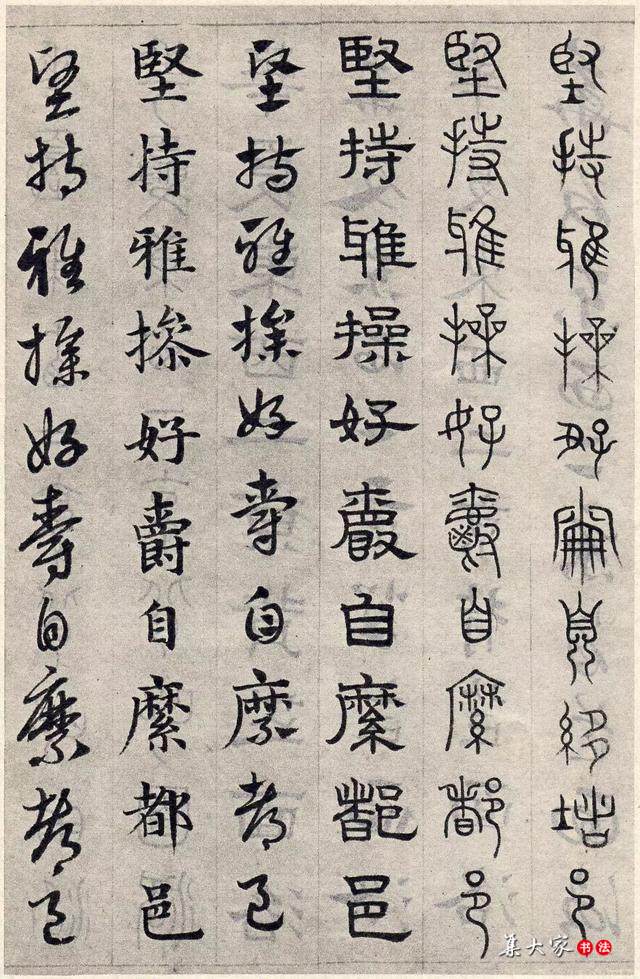 堅持雅操好爵自縻都邑
堅持雅操好爵自縻都邑
堅持雅操好爵自縻都邑
堅持雅操好爵自縻都邑
堅持雅操好爵自縻都邑
堅持雅操好爵自縻都邑
集大家书法